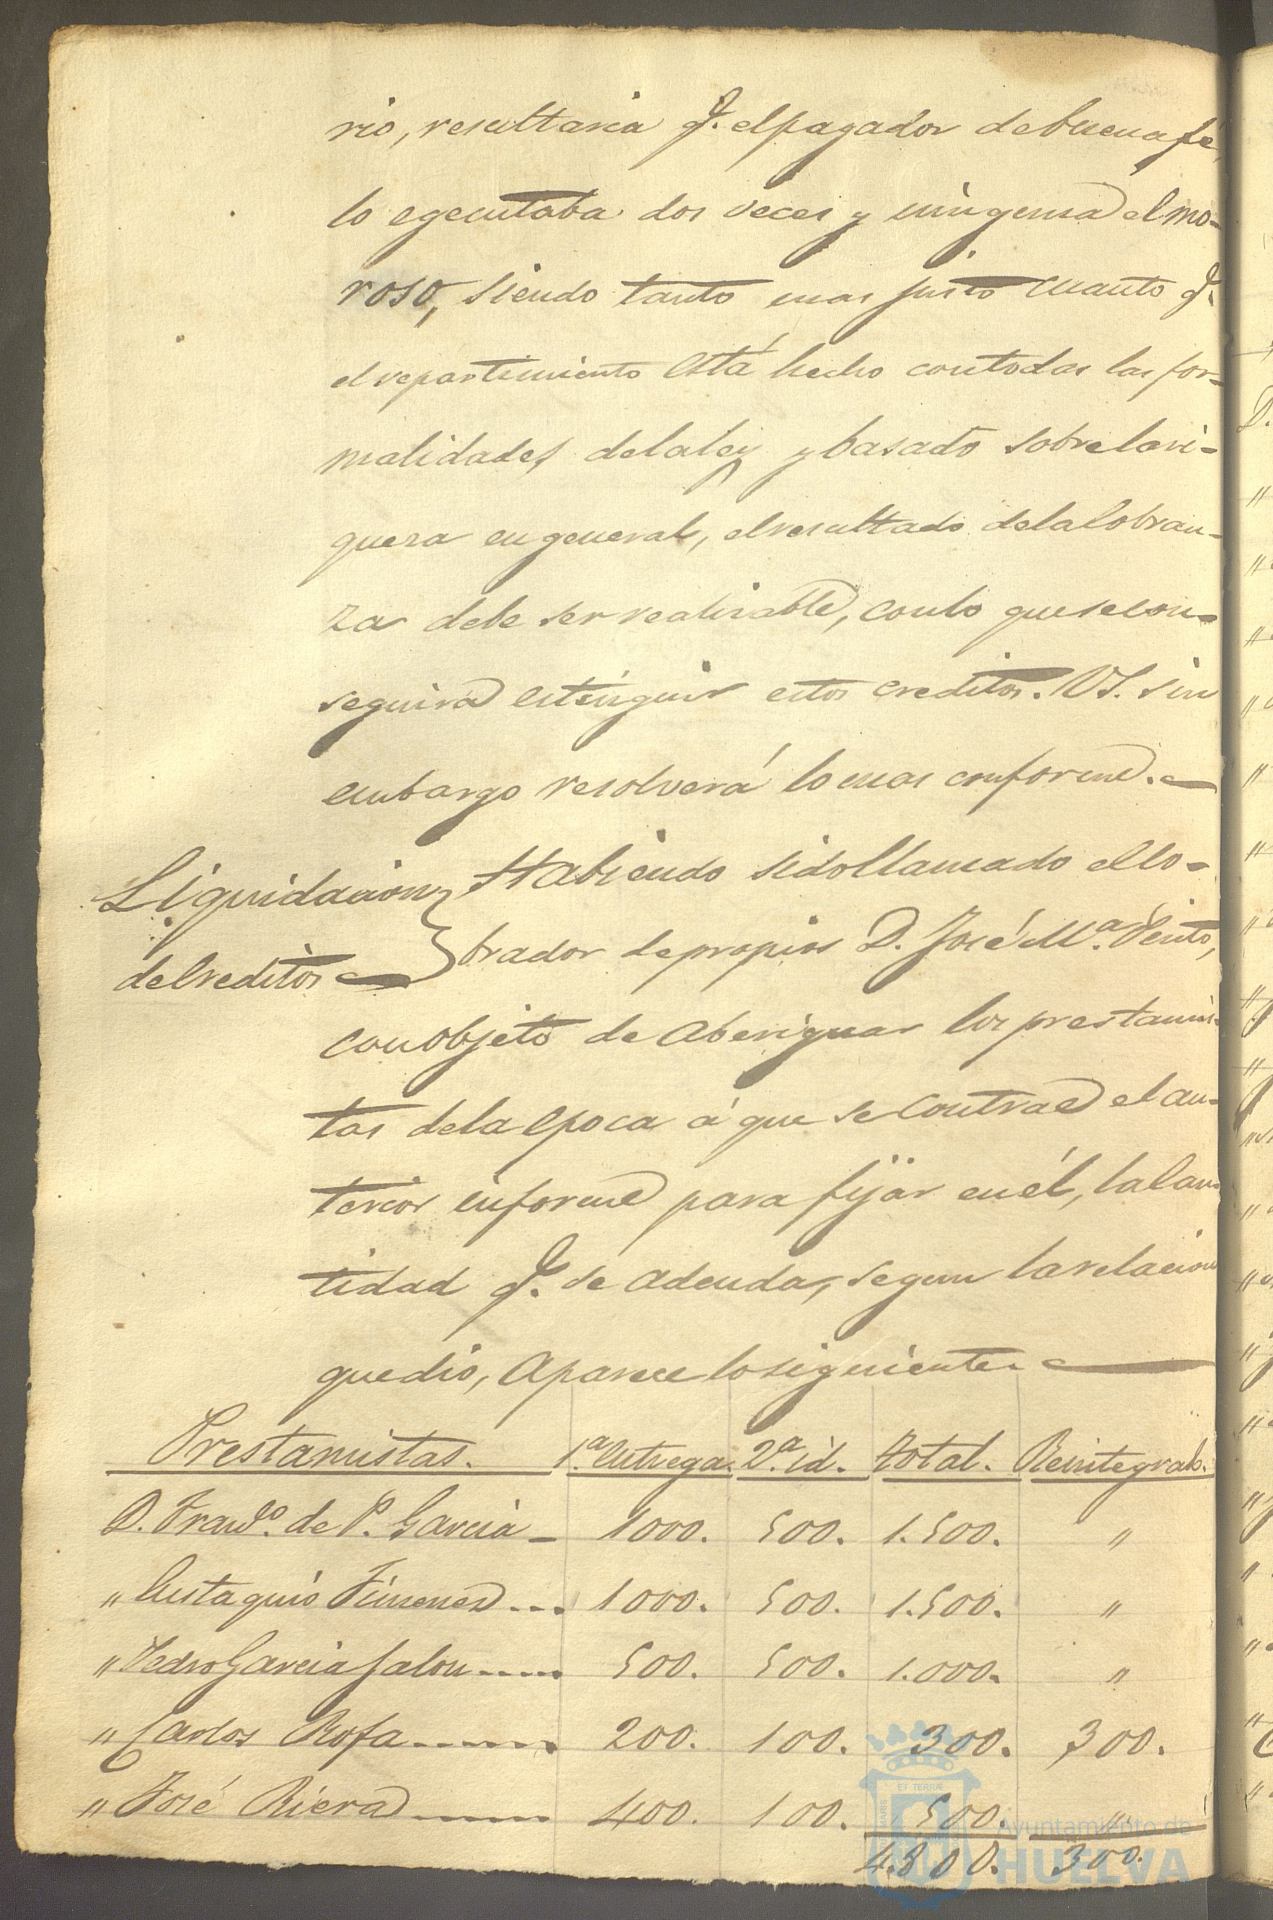 rio, resultaria q.e el pagador de buena fé,
lo egecutaba dos veces y ninguna el mo-
roso, siendo tanto mas justo cuanto q.e
el repartimiento está hecho con todas las for-
malidades de la ley y basado sobre la ri-
queza en general, el resultado de la Cobran-
za debe ser realizable, con lo que se con-
seguirá estinguir estos creditos. VS. sin
embargo resolverá lo mas conforme.
Liquidacion
de Creditos
Habiendo sido llamado el Co-
brador de propios D. José M.a Pinto,
con objeto de aberiguar los prestamis-
tas de la epoca á que se contrae el an-
terior informe para fijar en él, la Can-
tidad q.e se adeuda, segun la relacion
que dio, aparece lo siguiente.
Prestamistas. 1.a entrega. 2.a id. Total. Reintegrado.
D. Fran.co de P. Garcia 1000. 500. 1.500. "
" Eustaquio Jimenez 1000. 500. 1.500. "
" Pedro Garcia Jalon 500. 500. 1.000. "
" Carlos Rofa 200. 100. 300. 300.
" José Riera 400. 100. 500. "
4.800. 300.
Ayuntamiento de
HUELVA